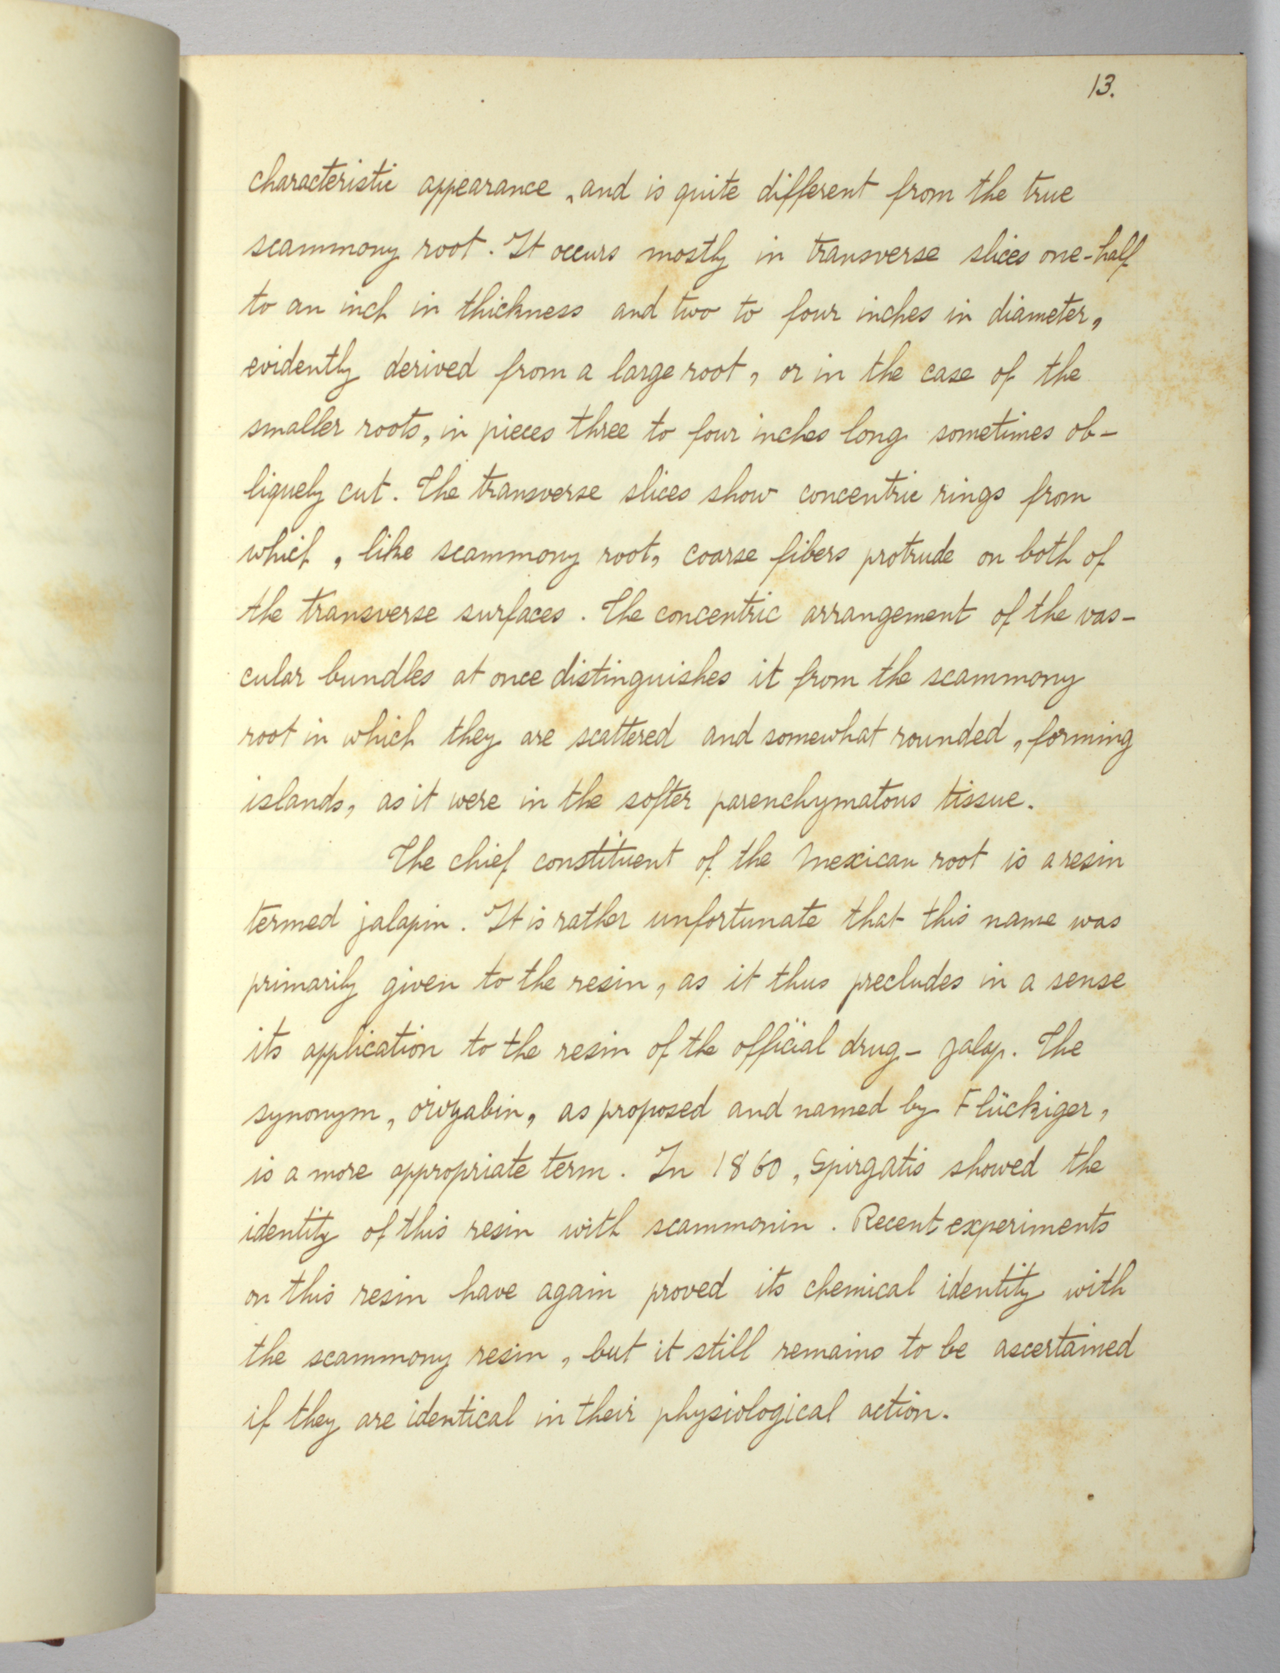 13.
characteristic appearance, and is quite different from the true
scammony root. It occurs mostly in transverse slices one-half
to an inch in thickness and two to four inches in diameter,
evidently derived from a large root, or in the case of the
smaller roots, in pieces three to four inches long sometimes ob-
liquely cut. The transverse slices show concentric rings from
which, like scammony root, coarse fibers protrude on both of
the transverse surfaces. The concentric arrangement of the vas-
cular bundles at once distinguishes it from the scammony
root in which they are scattered and somewhat rounded, forming
islands, as it were in the softer parenchymatous tissue.
The chief constituent of the Mexican root is a resin
termed jalapin. It is rather unfortunate that this name was
primarily given to the resin, as it thus precludes in a sense
its application to the resin of the official drug - jalap. The
synonym, orizabin, as proposed and named by Flückiger,
is a more appropriate term. In 1860, Spirgatis showed the
identity of this resin with scammonin. Recent experiments
on this resin have again proved its chemical identity with
the scammony resin, but it still remains to be ascertained
if they are identical in their physiological action.